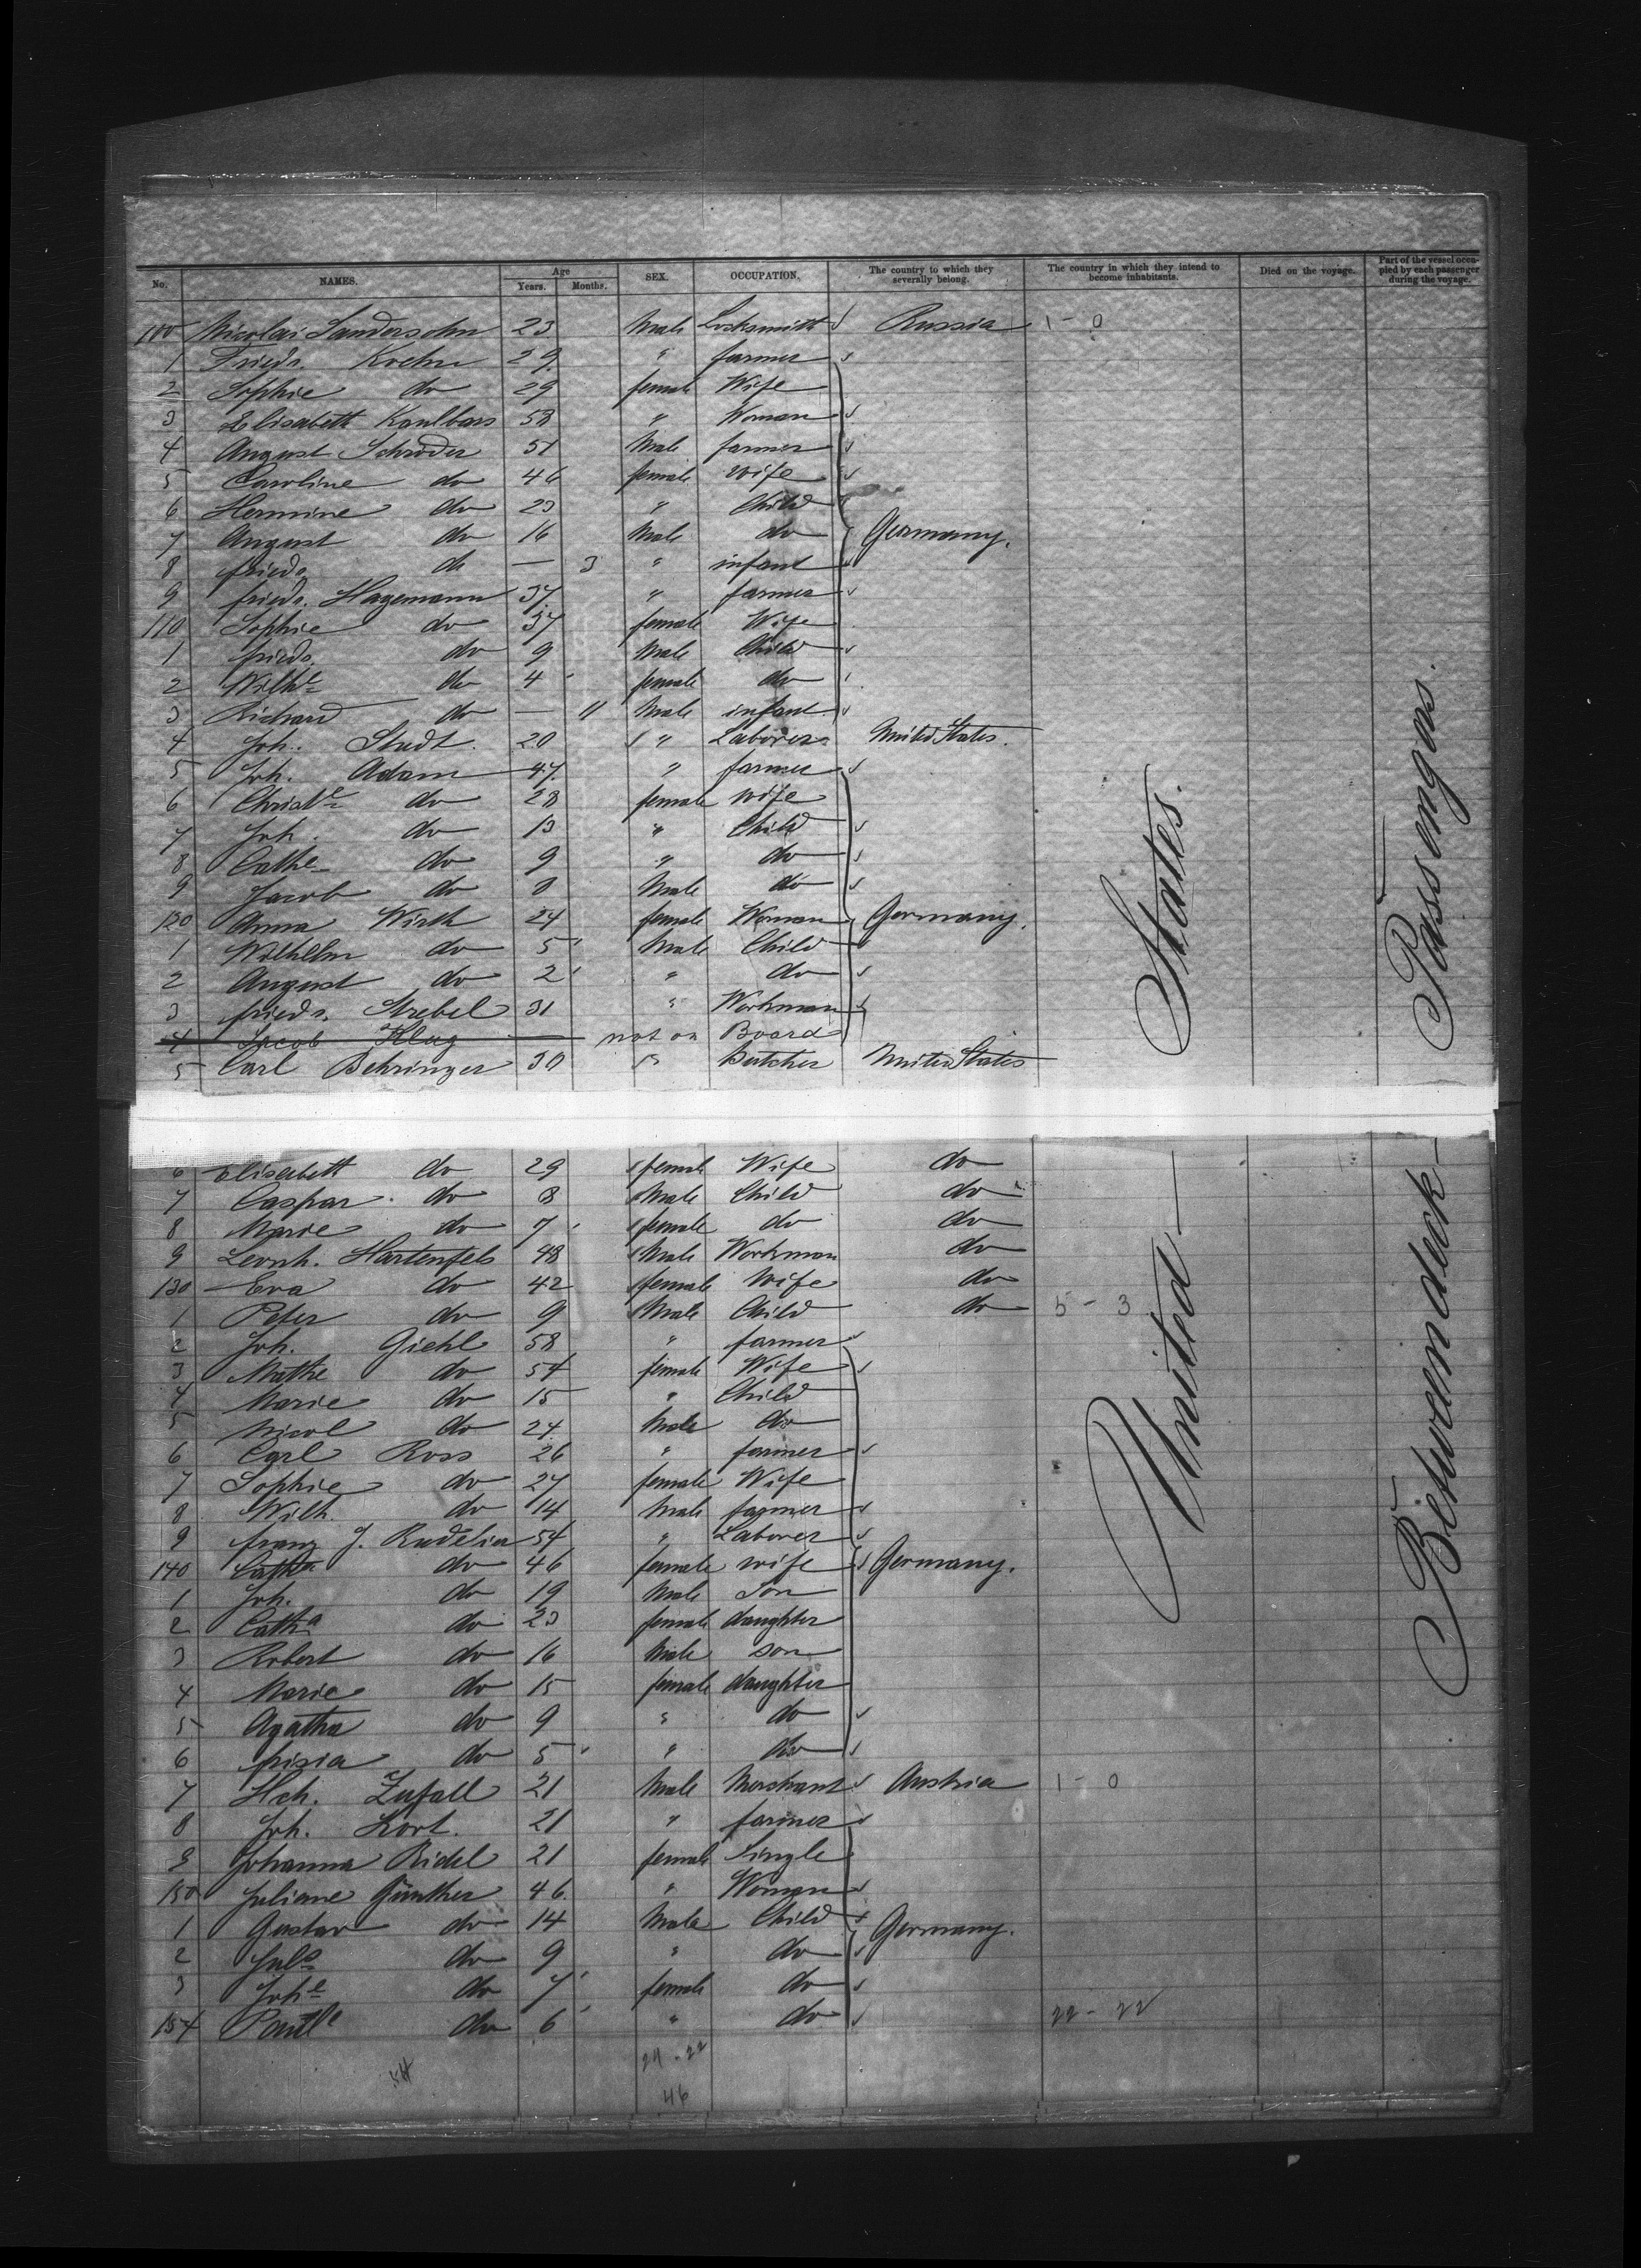 No. NAMES. Age Years. Months. SEX. OCCUPATION. The country to which they severally belong. The country in which they intend to become inhabitants. Died on the voyage. Part of the vessel occupied by each passenger during the voyage.
100 Nicolai Sandersohn 23 Male Locksmith Russia 1 - 0
1 Friedr. Krehn 29 " farmer
2 Sophie do 29 female Wife
3 Elisabeth Kaulbars 58 " Woman
4 August Schröder 51 Male farmer
5 Caroline do 46 female wife
6 Hermine do 23 " Child
7 August do 16 Male do Germany.
8 friedr. do — 3 " infant
9 friedr. Hagemann 37 " farmer
110 Sophie do 37 female Wife
1 friedr. do 9 Male Child
2 Wilhe do 4 female do
3 Richard do — 11 Male infant
4 Joh. Stadt. 20 " Laborer United States.
5 Joh. Adam 47 " farmer
6 Christe do 28 female wife
7 Joh. do 13 " Child
8 Cathe do 9 " do
9 Jacob do 8 Male do
120 Anna Wirth 24 female Woman Germany.
1 Wilhelm do 5 Male Child
2 August do 2 " do
3 friedr. Strebel 31 " Workman
4 Jacob Klug — not on Board
5 Carl Behringer 30 " Butcher United States
6 Elisabeth do 29 female Wife do
7 Caspar do 8 Male Child do
8 Marie do 7 female do do
9 Leonh. Hartenfels 48 Male Workman do
130 Eva do 42 female Wife do
1 Peter do 9 Male Child do 5 - 3
2 Joh. Giehl 58 " farmer
3 Mathe do 54 female Wife
4 Marie do 15 " Child
5 Nicol do 24 Male do
6 Carl Ross 26 " farmer
7 Sophie do 27 female Wife
8 Wilh. do 14 Male farmer
9 franz J. 54 " Laborer
140 Catha do 46 female wife Germany.
1 Joh. do 19 Male Son
2 Catha do 23 female daughter
3 Robert do 16 Male son
4 Marie do 15 female daughter
5 Agatha do 9 " do
6 do 5 " do
7 Hch. Zufall 21 Male Merchant Austria 1 - 0
8 Joh. Kort. 21 " farmer
9 Johanna Ridel 21 female Single
150 Juliane Günther 46 " Woman
1 Gustav do 14 Male Child Germany.
2 Jule do 9 " do
3 Johe do 7 female do
154 Paule do 6 " do 22 - 22
54 24 - 22
46
United States.
Betweendeck Passengers.